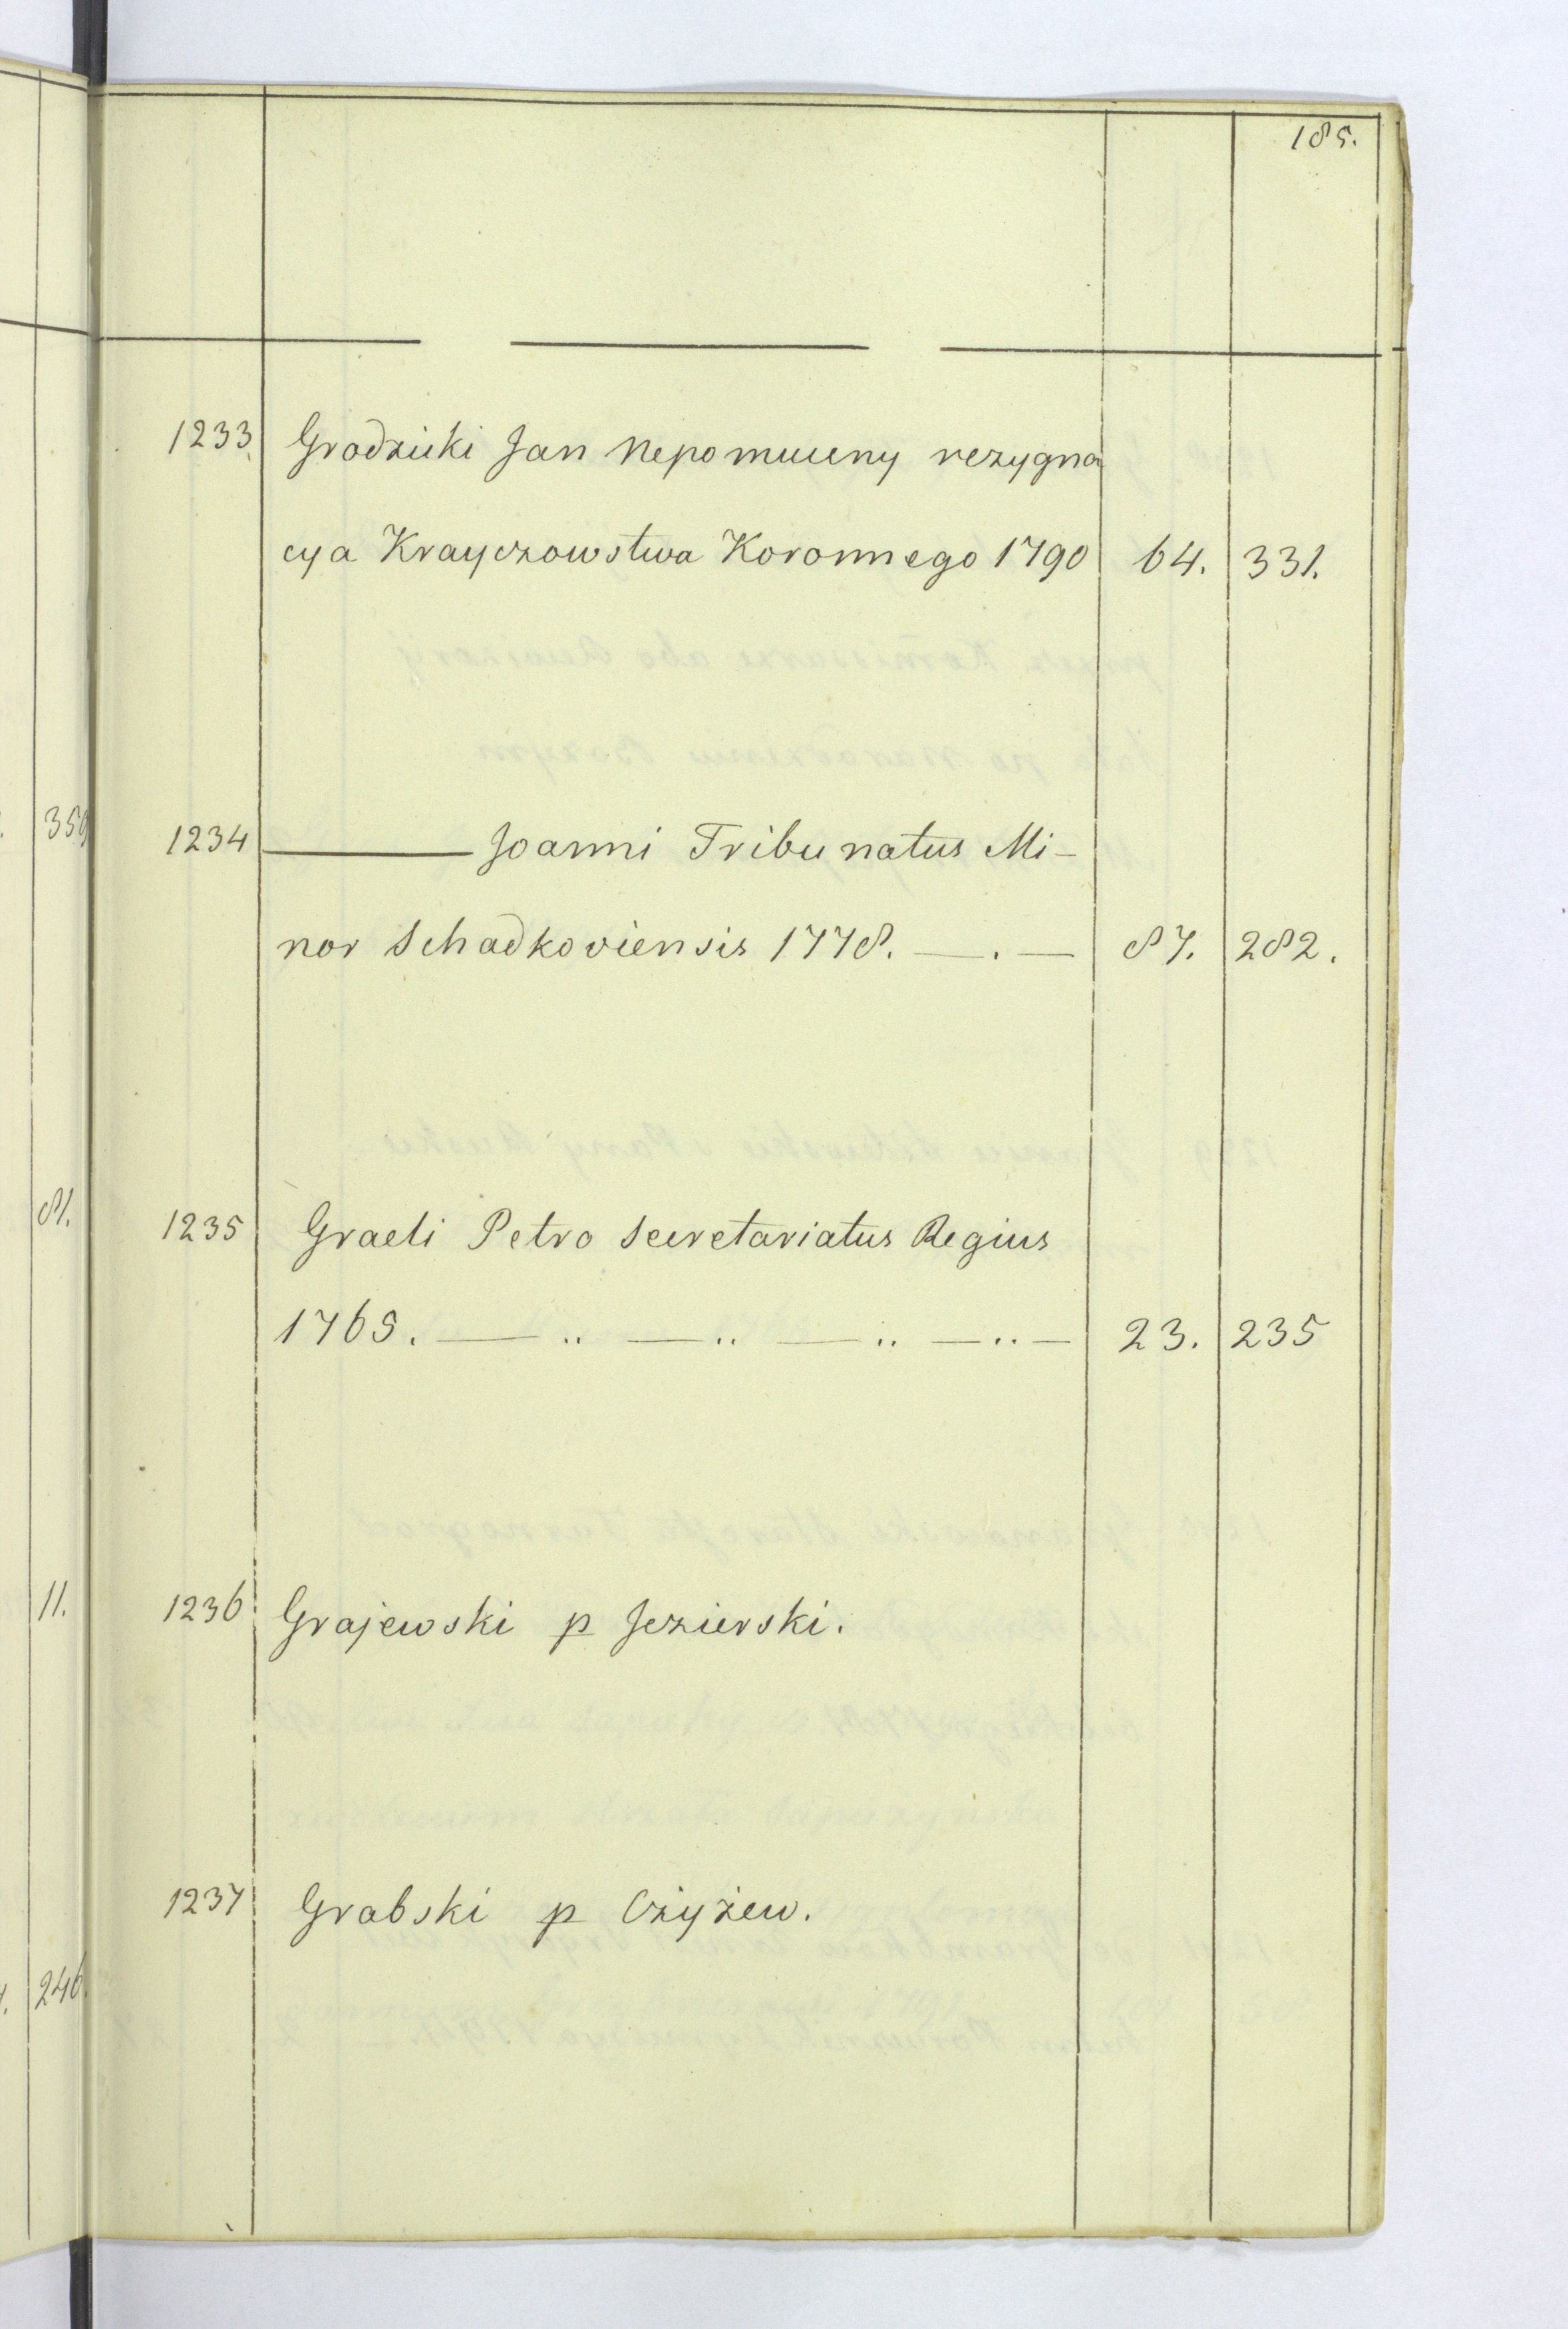 185.
1233. Grodzicki Jan Nepomuceny rezygna
cya Krayczowstwa Koronnego 1790 64. 331.
1234 ——— Joanni Tribunatus Mi-
nor Schadkoviensis 1778. — . — 87. 282.
1235 Graeti Petro Secretariatus Regius
1765. — .. — .. — .. — .. — 23. 235
1236 Grajewski p Jezierski.
1237 Grabski p Czyżew.